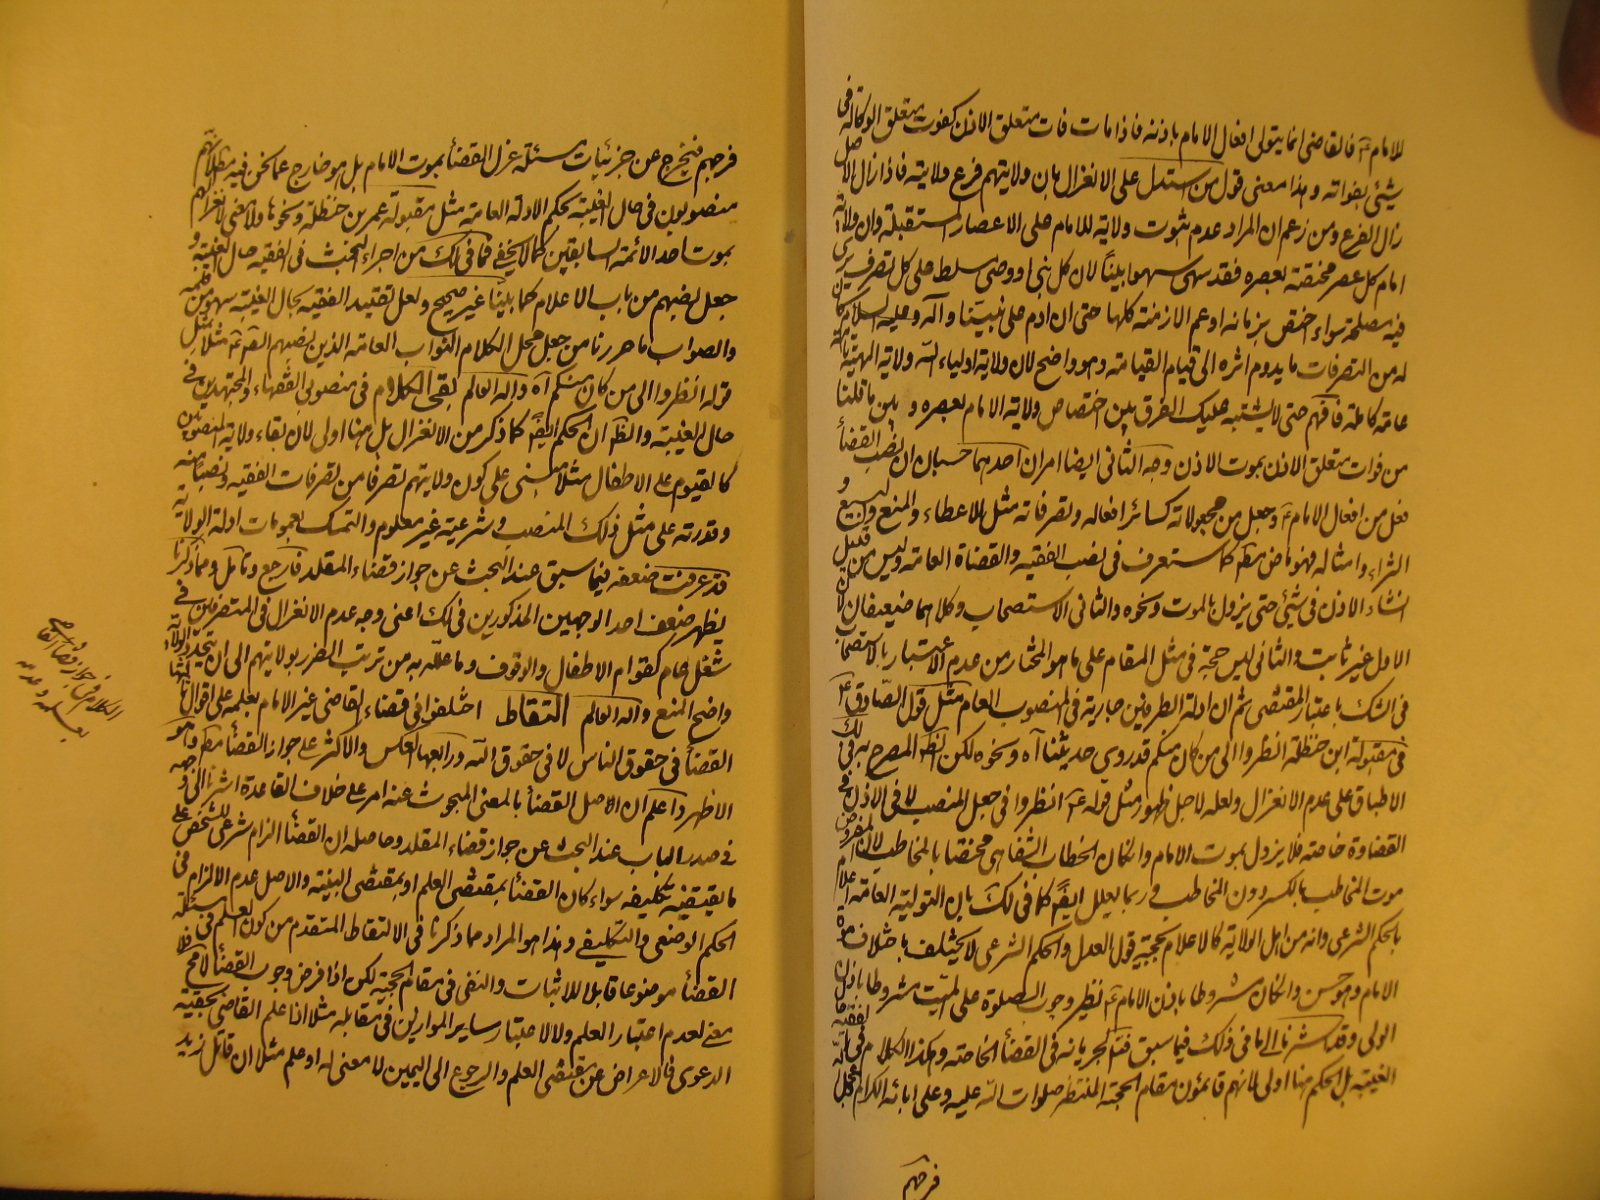 للامام ع فالقاضى انما يتولى افعال الامام باذنه فاذا مات فات متعلق الاذن كفوت متعلق الوكالة فى
شيئى بفواته وهذا معنى قول من استدل على الانعزال بان ولايتهم فرع ولايته فاذا زال الاصل
زال الفرع ومن زعم ان المراد عدم ثبوت ولاية للامام على الاعصار المستقبلة وان ولاية
امام كل عصر مختصة بعصره فقد سهى سهوا بينا لان كل نبى او وصى سلط على كل تصرف يرى
فيه مصلحة سواء اختص بزمانه او عم الازمنة كلها حتى ان ادم على نبينا وآله وعليه السلام كان
له من التصرفات ما يدوم اثره الى قيام القيامة وهو واضح لان ولاية اولياء الله ولاية الهية تامة
عامة كاملة فافهم حتى لا يشتبه عليك الفرق بين اختصاص ولاية الامام بعصره و بين ما قلنا
من فوات متعلق الاذن بموت الاذن وجه الثانى ايضا امران احدهما حسبان ان نصب القضاة
فعل من افعال الامام ع وجعل من مجعولاته كسائر افعاله وتصرفاته مثل الاعطاء والمنع والبيع و
الشراء وامثاله فهو ماض مطلقا كما ستعرف فى نصب الفقيه والقضاة العامة وليس من قبيل
انشاء الاذن فى شيئى حتى يزول بالموت ونحوه والثانى الاستصحاب وكلاهما ضعيفان لان
الاول غير ثابت والثانى ليس حجة فى مثل المقام على ما هو المختار من عدم الاعتبار بالاستصحاب
فى الشك باعتبار المقتضى ثم ان ادلة الطرفين جارية فى المنصوب العام مثل قول الصادق ع
فى مقبولة ابن حنظلة انظروا الى من كان منكم قد روى حديثنا آه ونحوه لكن الظ المصرح به فى لك
الاطباق على عدم الانعزال ولعله لاجل ظهور مثل قوله ع انظروا فى جعل المنصب لا فى الاذن فى
القضاوة خاصة فلا يزول بموت الامام وان كان الخطاب الشفاهى مختصا بالمخاطب لان المفروض
موت المخاطب بالكسر دون المخاطب و ربما يعلل ايضا كما فى لك بان التولية العامة اعلام
بالحكم الشرعى وانه من اهل الولاية كالاعلام بحجية قول العدل والحكم الشرعى لا يختلف باختلاف موت
الامام وهو حسن وان كان مشروطا باذن الامام ع نظير وجوب الصلوة على الميت مشروطا باذن
الولى وقد اشرنا الى ما فى ذلك فيما سبق فى القضاء الخاصة وهكذا الكلام فى الفقيه حال
الغيبة بل الحكم هنا اولى لانهم قائمون مقام الحجة المنتظر صلوات الله عليه وعلى ابائه الكرام عجل الله
فرجهم
فرجهم فيخرج عن جزئيات مسئلة عزل القضاة بموت الامام بل هو خارج عما نحن فيه مطلقا لانهم
منصوبون فى حال الغيبة بحكم الادلة العامة مثل مقبولة عمر بن حنظلة ونحوها ولا معنى لانعزالهم
بموت احد الائمة السابقين كما لا يخفى فما فى لك من اجراء البحث فى الفقيه حال الغيبة و
جعل نصبهم من باب الاعلام كما بينا غير صحيح ولعل تقييد الفقيه بحال الغيبة سهو من قلمه
والصواب ما حررنا من جعل محل الكلام النواب العامة الذين نصبهم الصادق ع مثلا مثل
قوله انظروا الى من كان منكم آه والله العالم بقى الكلام فى منصوبى الفقهاء والمجتهدين فى
حال الغيبة والظ ان الحكم ايضا كما ذكر من الانعزال بل هنا اولى لان بقاء ولاية المنصوبين
كالقيوم على الاطفال مثلا مبنى على كون ولايتهم تصرفا من تصرفات الفقيه ونصبا منه
وقدرته على مثل ذلك المنصب وشرعيته غير معلوم والتمسك بعمومات ادلة الولاية
قد عرفت ضعفه فيما سبق عند البحث عن جواز قضاء المقلد فارجع وتامل ومما ذكرنا
يظهر ضعف احد الوجهين المذكورين فى لك اعنى وجه عدم الانعزال فى المتصرفين فى
شغل عام كقوام الاطفال والوقوف وما علله به من ترتب الضرر بولايتهم الى ان تتجدد الولاية
واضح المنع والله العالم التقاط اختلفوا فى قضاء القاضى غير الامام بعلمه على اقوال ثالثها
القضاء فى حقوق الناس لا فى حقوق الله ورابعها العكس والاكثر على جواز القضاء مطلقا وهو
الاظهر واعلم ان الاصل القضاء بالمعنى المبحوث عنه امر على خلاف القاعدة اشرنا الى وجهه
فى صدر الباب عند البحث عن جواز قضاء المقلد وحاصله ان القضاء الزام شرعى للشخص على
ما يقتضيه تكليفه سواء كان القضاء بمقتضى العلم او بمقتضى البينة والاصل عدم الالزام فى
الحكم الوضعى والتكليفى وهذا هو المراد مما ذكرنا فى الالتقاط المتقدم من كون العلم فى مسئلة
القضاء موضوعا قابلا للاثبات والنفى فى مقام الحجية لكن اذا فرض وجوب القضاء لامح فلا
معنى لعدم اعتبار العلم ولا لاعتبار ساير الموازين فى مقابله مثلا اذا علم القاضى بحقية
الدعوى فالاعراض عن مقتضى العلم والرجوع الى اليمين لا معنى له او علم مثلا ان قاتل زيد
الكلام فى جواز قضاء القاضى
بعلمه وعدمه